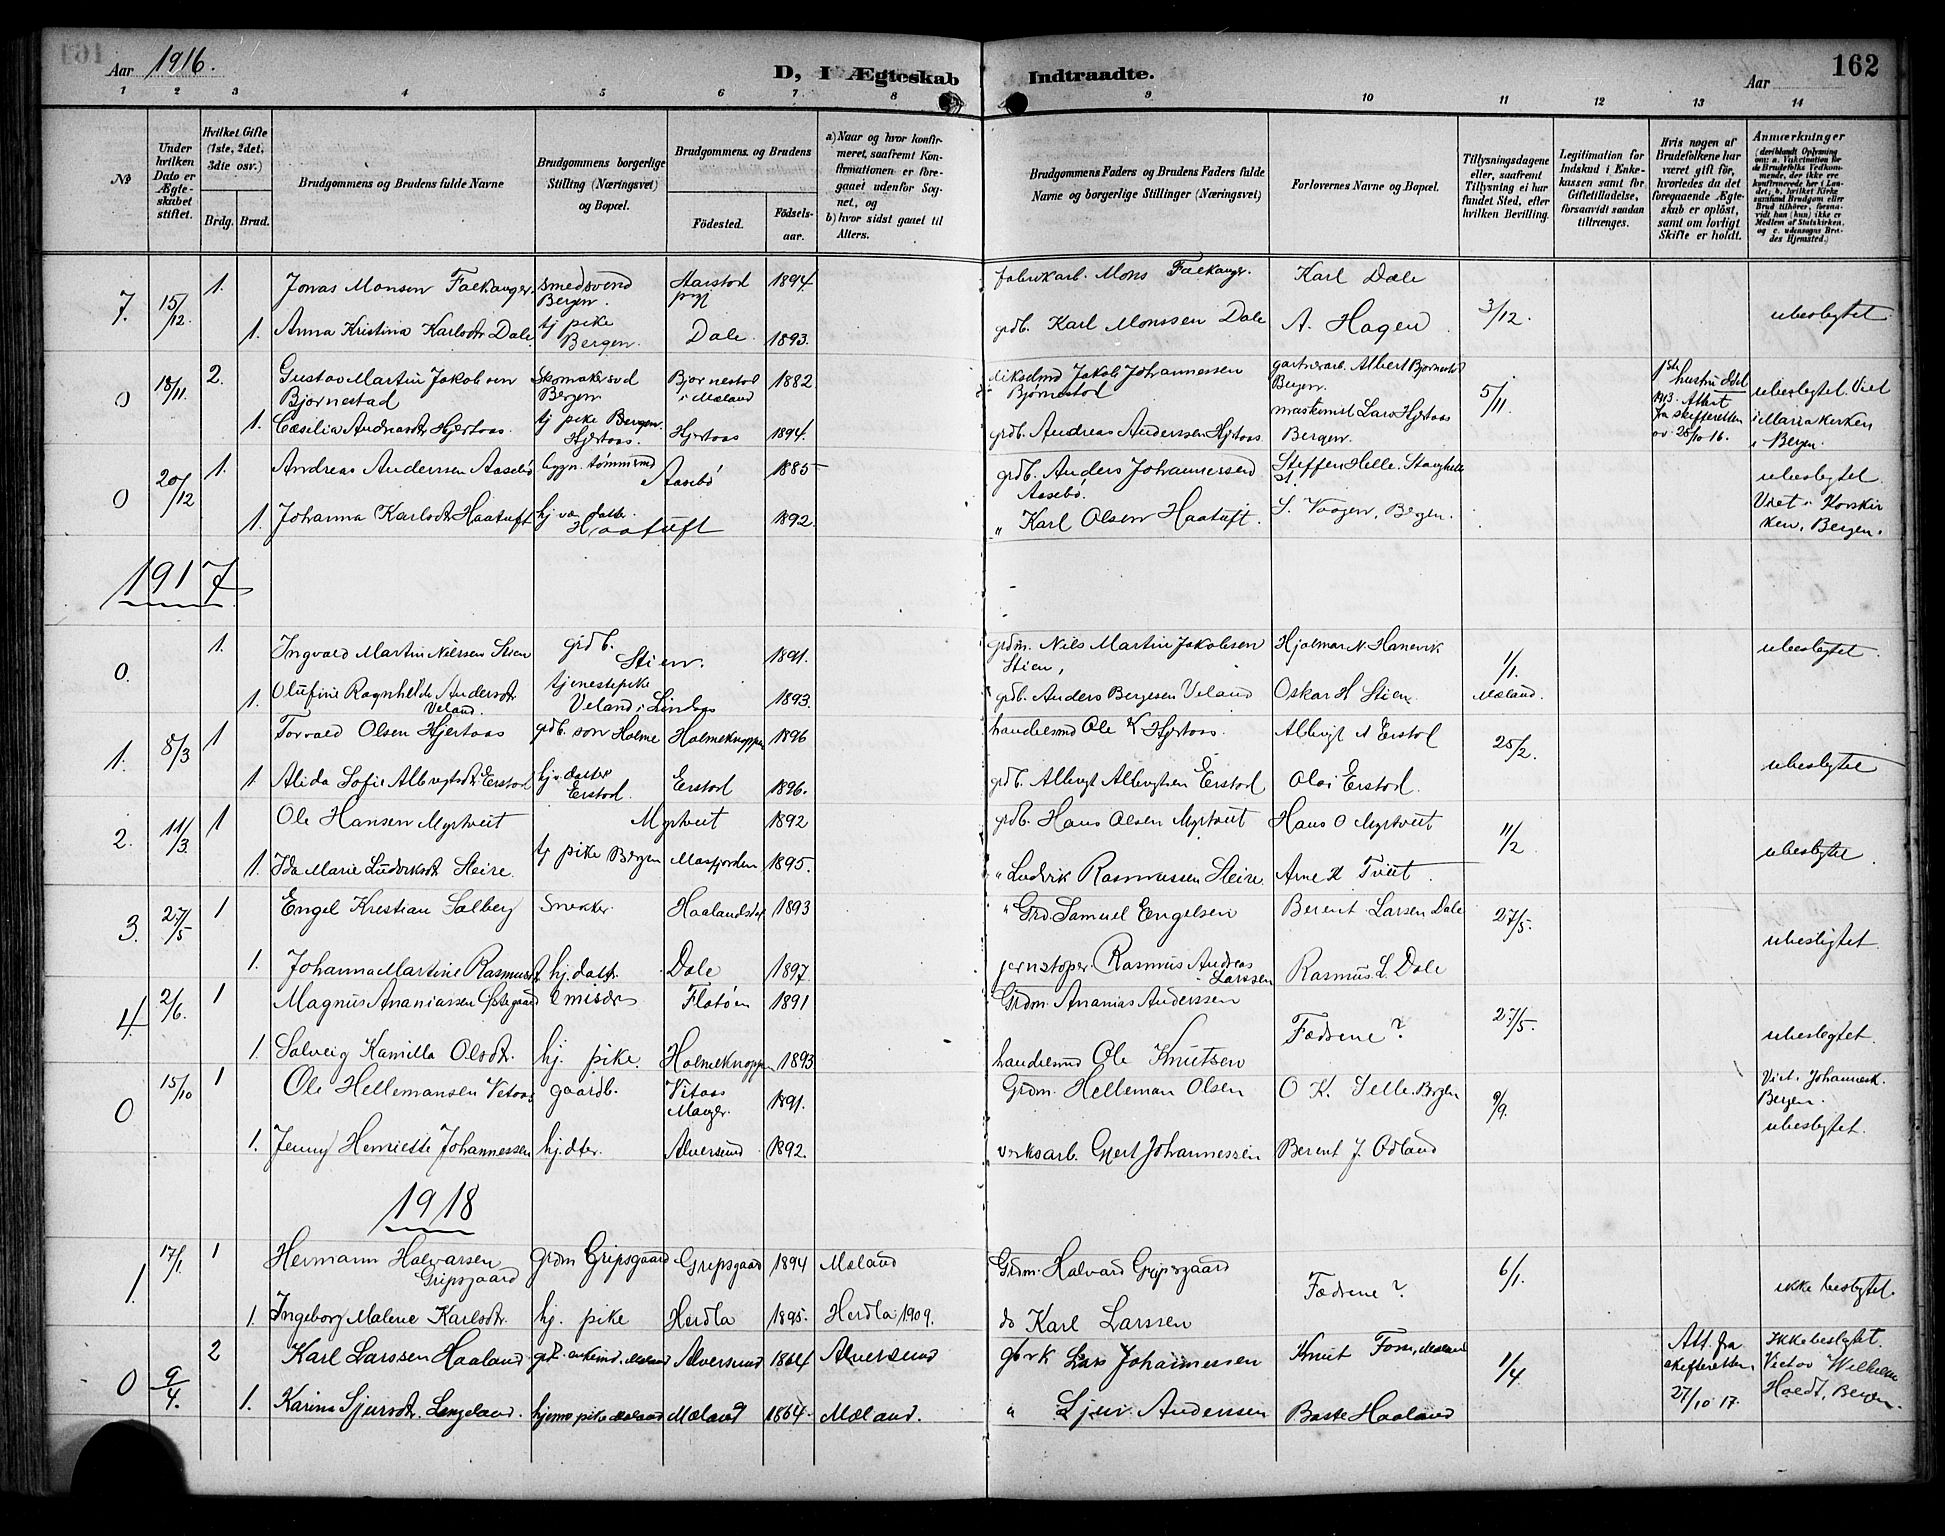 Aar 1916.
D, I Ægteskab Indtraadte.
Aar
162
1 2 3 4 5 6 7 8 9 10 11 12 13 14
No
Under hvilken Dato er Ægteskabet stiftet.
Hvilket Gifte (1ste, 2det, 3die osv.)
Brdg. Brud.
Brudgommens og Brudens fulde Navne
Brudgommens borgerlige Stilling (Næringsvei) og Bopæl.
Brudgommens og Brudens
Födested.
Födselsaar.
a) Naar og hvor konfirmeret, saafremt Konfirmationen er foregaaet udenfor Sognet, og
b) hvor sidst gaaet til Alters.
Brudgommens Faders og Brudens Faders fulde Navne og borgerlige Stillinger (Næringsvei)
Forlovernes Navne og Bopæl.
Tillysningsdagene eller, saafremt Tillysning ei har fundet Sted, efter hvilken Bevilling.
Legitimation for Indskud i Enkekassen samt for Giftetilladelse, forsaavidt saadan tiltrænges.
Hvis nogen af Brudefolkene har været gift før, hvorledes da det foregaaende Ægteskab er oplöst, samt om lovligt Skifte er holdt.
Anmærkninger
(deriblandt Oplysning om: a. Vakcination for de Brudefolks Vedkommende, der ikke ere konfirmerede her i Landet; b. hvilket Kirkesamfund Brudgom eller Brud tilhörer, forsaavidt han (hun) ikke er Medlem af Statskirken, og c. udensogns Brudes Hjemsted.)
7. 15/12 1. Jonas Monsen Falkanger smedsvend Bergen. 1894 fabrikarb. Mons Falkanger Karl Dale 3/12. ubeslegtet.
1. Anna Kristina Karlsdtr Dale tj pike Bergen. Dale 1893. grdb. Karl Monssen Dale A. Hagen
0 18/11. 2. Gustav Martin Jakobsen Bjørnestad Skomakersvd Bergen Bjørnestad i Mæland 1882 Jakob Johannessen Bjørnestad gartnerarb. Albert Bjørnestad Bergen. 5/11 1ste hustru død 1913. Attest fra skifteretten av 25/10 16. ubeslegtet Viet i Mariakirken i Bergen.
1. Cæselia Andreasdtr Hjertaas tj pike Bergen. Hjertaas. Hjertaas 1894. grdb. Andreas Anderssen Hjertaas maskinist Lars Hjertaas Bergen.
0 20/12 1. Andreas Anderssen Aasebø bygn. tømmermd Aasebø 1885 grdb. Anders Johannessen Aasebø. Steffen Helle. ubeslegtet. Viet i Korskirken, Bergen.
1. Johanna Karlsdtr Haatuft hj væ datter. Haatuft 1892. " Karl Olsen Haatuft. S. Vaagen, Bergen.
1917
0. 1. Ingvald Martin Nilssen Stien grdb. Stien. 1891. grdm. Nils Martin Jakobsen Stien, Hjalmar N. Hanevik 1/1. Mæland. ubeslegtet.
1. Olufine Ragnhilda Andersdtr Veland. tjenestepike Veland i Lindaas 1893. grdb. Anders Bergesen Veland Oskar H Stien
1. 8/3 1 Torvald Olsen Hjertaas grdb. søn Holme Holmeknappen 1896 handelsmd Ole K Hjertaas Albrigt A Erstad 25/2. ubeslegtet
1. Alida Sofie Albrigtsdtr. Erstad hjv. datter Erstad. Erstad 1896. grdb. Albrigt Albrigtsen Erstad Olai Erstad.
2. 11/3 1 Ole Hansen Myrtveit Myrtveit 1892 grdb. Hans Olsen Myrtveit Hans O Myrtveit 11/2 ubeslegtet.
1. Ida Marie Ludviksdtr Steire. tj pike Bergen Masfjorden 1895. " Ludvik Rasmussen Steire. Arne H Tveit.
3. 27/5 1 Engel Kristian Salberg Snekker. Haalandsdal 1893 " Grd Samuel Engelsen Berent Larsen Dale 27/5. ubeslegtet.
1. Johanna Martine Rasmusdt hj. dattr. Dale 1897. jernstøper. Rasmus Andreas Larssen Rasmus L. Dale
4. 2/6. 1 Magnus Ananiassen Østegaard Emissær Flatøen 1891 Grdm. Ananias Anderssen Fædrene? 27/5. ubeslegtet.
1. Solveig Kamilla Olsdtr. hj. pike. Holmeknappen 1893 handelsmd Ole Knutsen
0 15/10 1 Ole Hellemansen Vetaas gaardb. Vetaas Manger. 1891. Grdm. Helleman Olsen O K. Selle. Bergen 9/9. Viet i Johannesk. Bergen. ubeslegtet.
1. Jenny Henriette Johannessen hj. dter. Alversund 1892. verksarb. Gjert Johannessen Berent J. Odland
1918
1. 17/1. 1 Hermann Halvarsen Gripsgaard Grdm Gripsgaard Gripsgaard 1894 Mæland Grdm. Halvard Gripsgaard Fædrene? 6/1. ikke beslegtet.
1. Ingeborg Malene Karlsdtr. hj. pike Herdla 1895. Herdla 1909. do Karl Larssen
0 9/4. 2 Karl Larssen Haaland Alversund 1864 Alversund Lars Johannessen Knut Fosse, Mæland 1/4 Att. fra skifteretten 27/10 17. Ikke beslegtet. Victor Wilhelm Holdt, Bergen.
1. Karina Sjursdtr. Langeland. hjemv pike Mæland Mæland 1864. Mæland. " Sjur Andersen Baste Haaland